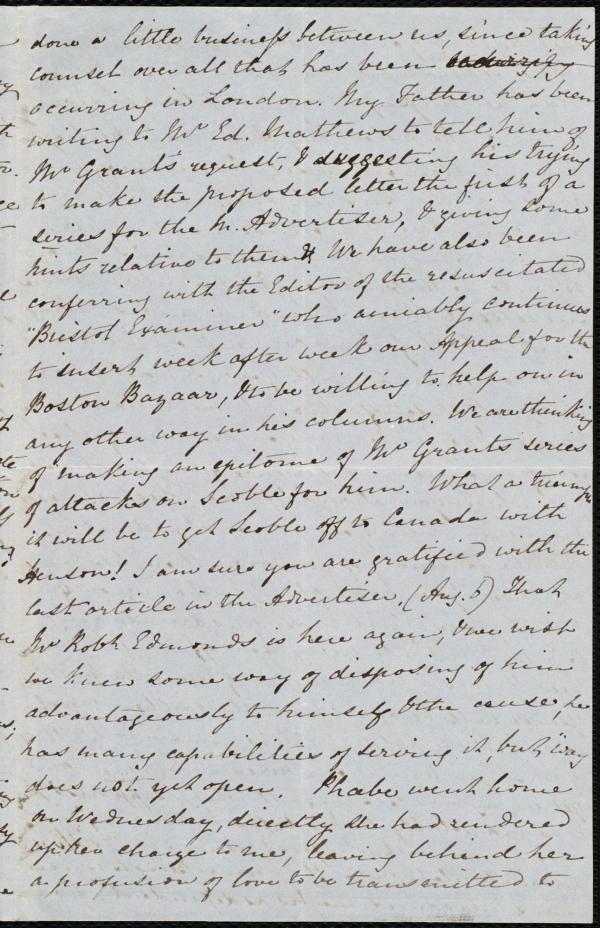 done a little business between us, since taking
counsel over all that has been
occurring in London. My Father has been
writing to Mr Ed. Mathews to tell him of
Mr Grant's request, & suggesting his trying
to make the proposed letter the first of a
series for the M. Advertiser, & giving some
hints relative to them. We have also been
conferring with the Editor of the resuscitated
"Bristol Examiner" who amiably continues
to insert week after week our Appeal for the
Boston Bazaar, & to be willing to help on in
any other way in his columns. We are thinking
of making an epitome of Mr Grant's series
of attacks on Scoble for him. What a triumph
it will be to get Scoble off to Canada with
Henson! I am sure you are gratified with the
last article in the Advertiser. (Aug. 5) That
Mr Robt Edmonds is here again, & we wish
we knew some way of disposing of him
advantageously to himself & the cause, he
has many capabilities of serving it, but "way
does not yet open. Phœbe went home
on Wednesday, directly she had rendered
up her charge to me, leaving behind her
a profusion of love to be transmitted to